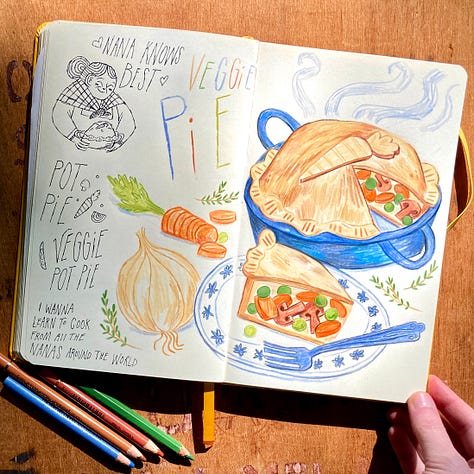 NANA KNOWS
BEST
VEGGiE
PiE
POT
PiE
VEGGIE
POT PIE
I WANNA
LEARN TO COOK
FROM ALL THE
NANAS AROUND THE WORLD